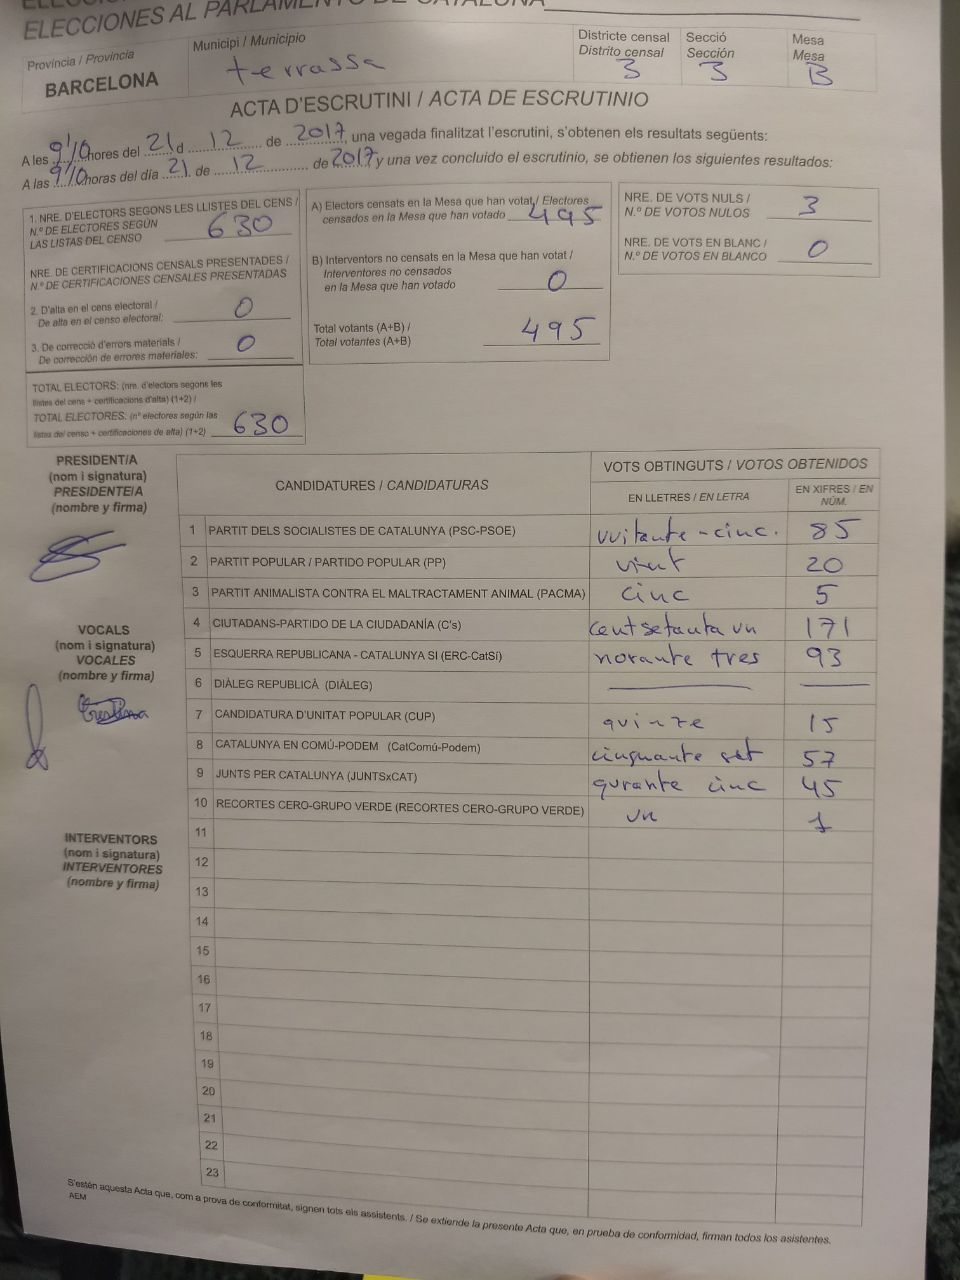 ELECCIONES AL PARLAMENTO DE CATALUÑA
Província / Provincia
BARCELONA
Municipi / Municipio
terrassa
Districte censal
Distrito censal
3
Secció
Sección
3
Mesa
Mesa
B
ACTA D'ESCRUTINI / ACTA DE ESCRUTINIO
A les 9'10 hores del 21 d 12 de 2017, una vegada finalitzat l'escrutini, s'obtenen els resultats següents:
A las 9'10 horas del día 21 de 12 de 2017 y una vez concluido el escrutinio, se obtienen los siguientes resultados:
1. NRE. D'ELECTORS SEGONS LES LLISTES DEL CENS /
N.º DE ELECTORES SEGÚN
LAS LISTAS DEL CENSO 630
NRE. DE CERTIFICACIONS CENSALS PRESENTADES /
N.º DE CERTIFICACIONES CENSALES PRESENTADAS
2. D'alta en el cens electoral /
De alta en el censo electoral: 0
3. De correcció d'errors materials /
De corrección de errores materiales: 0
TOTAL ELECTORS: (nre. d'electors segons les
llistes del cens + certificacions d'alta) (1+2) /
TOTAL ELECTORES: (nº electores según las
listas del censo + certificaciones de alta) (1+2) 630
A) Electors censats en la Mesa que han votat / Electores
censados en la Mesa que han votado 495
B) Interventors no censats en la Mesa que han votat /
Interventores no censados
en la Mesa que han votado 0
Total votants (A+B) /
Total votantes (A+B) 495
NRE. DE VOTS NULS /
N.º DE VOTOS NULOS 3
NRE. DE VOTS EN BLANC /
N.º DE VOTOS EN BLANCO 0
PRESIDENT/A
(nom i signatura)
PRESIDENTE/A
(nombre y firma)
VOCALS
(nom i signatura)
VOCALES
(nombre y firma)
Cristina
INTERVENTORS
(nom i signatura)
INTERVENTORES
(nombre y firma)
CANDIDATURES / CANDIDATURAS
VOTS OBTINGUTS / VOTOS OBTENIDOS
EN LLETRES / EN LETRA
EN XIFRES / EN NÚM.
1 PARTIT DELS SOCIALISTES DE CATALUNYA (PSC-PSOE) vuitante-cinc. 85
2 PARTIT POPULAR / PARTIDO POPULAR (PP) vint 20
3 PARTIT ANIMALISTA CONTRA EL MALTRACTAMENT ANIMAL (PACMA) cinc 5
4 CIUTADANS-PARTIDO DE LA CIUDADANÍA (C's) cent setanta un 171
5 ESQUERRA REPUBLICANA - CATALUNYA SI (ERC-CatSí) norante tres 93
6 DIÀLEG REPUBLICÀ (DIÀLEG)
7 CANDIDATURA D'UNITAT POPULAR (CUP) quinze 15
8 CATALUNYA EN COMÚ-PODEM (CatComú-Podem) cinquante set 57
9 JUNTS PER CATALUNYA (JUNTSxCAT) qurante cinc 45
10 RECORTES CERO-GRUPO VERDE (RECORTES CERO-GRUPO VERDE) un 1
11
12
13
14
15
16
17
18
19
20
21
22
23
S'estén aquesta Acta que, com a prova de conformitat, signen tots els assistents. / Se extiende la presente Acta que, en prueba de conformidad, firman todos los asistentes.
AEM